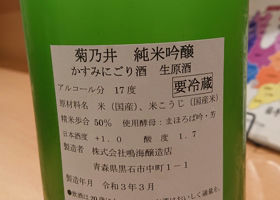 菊乃井 純米吟醸
かすみにごり酒 生原酒
アルコール分 17度
要冷蔵
原材料名 米(国産)、米こうじ(国産米)
精米歩合 50% 使用酵母:まほろば吟・芳
日本酒度 +1.0 酸度 1.7
製造者 株式会社鳴海醸造店
青森県黒石市中町1-1
製造年月 令和3年3月